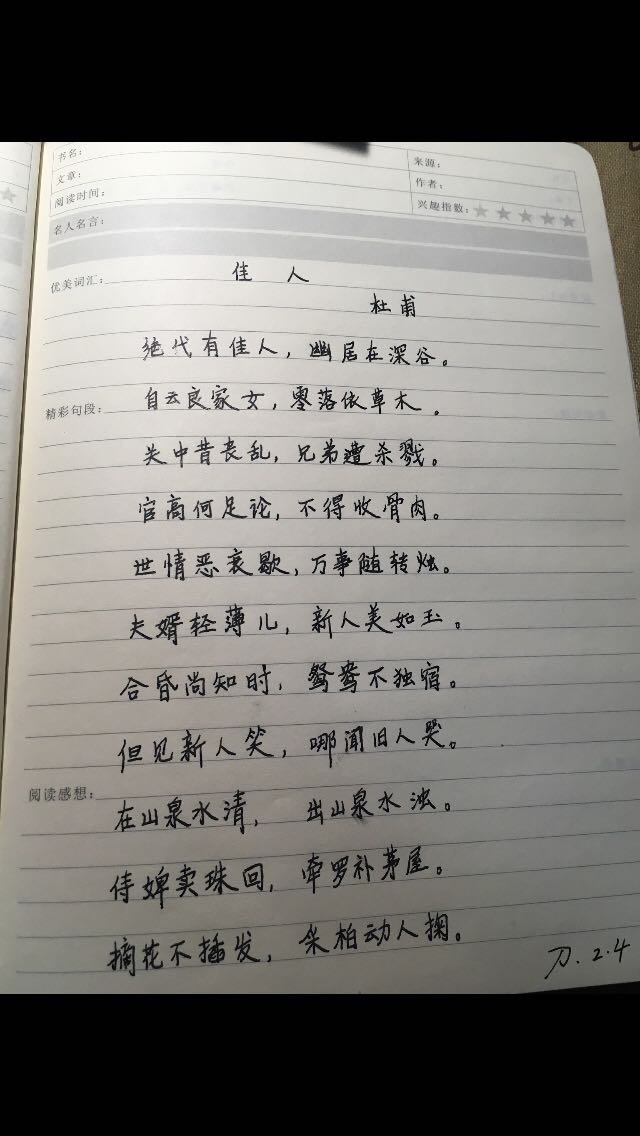 书名:
来源:
文章:
作者:
阅读时间:
兴趣指数:
名人名言:
优美词汇:
佳 人
杜甫
绝代有佳人，幽居在深谷。
精彩句段:
自云良家女，零落依草木。
关中昔丧乱，兄弟遭杀戮。
官高何足论，不得收骨肉。
世情恶衰歇，万事随转烛。
夫婿轻薄儿，新人美如玉。
合昏尚知时，鸳鸯不独宿。
但见新人笑，哪闻旧人哭。
阅读感想:
在山泉水清，出山泉水浊。
侍婢卖珠回，牵罗补茅屋。
摘花不插发，采柏动人掬。
刀.2.4